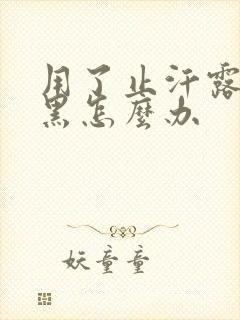 用了止汗露
黑怎麼办
妖童童